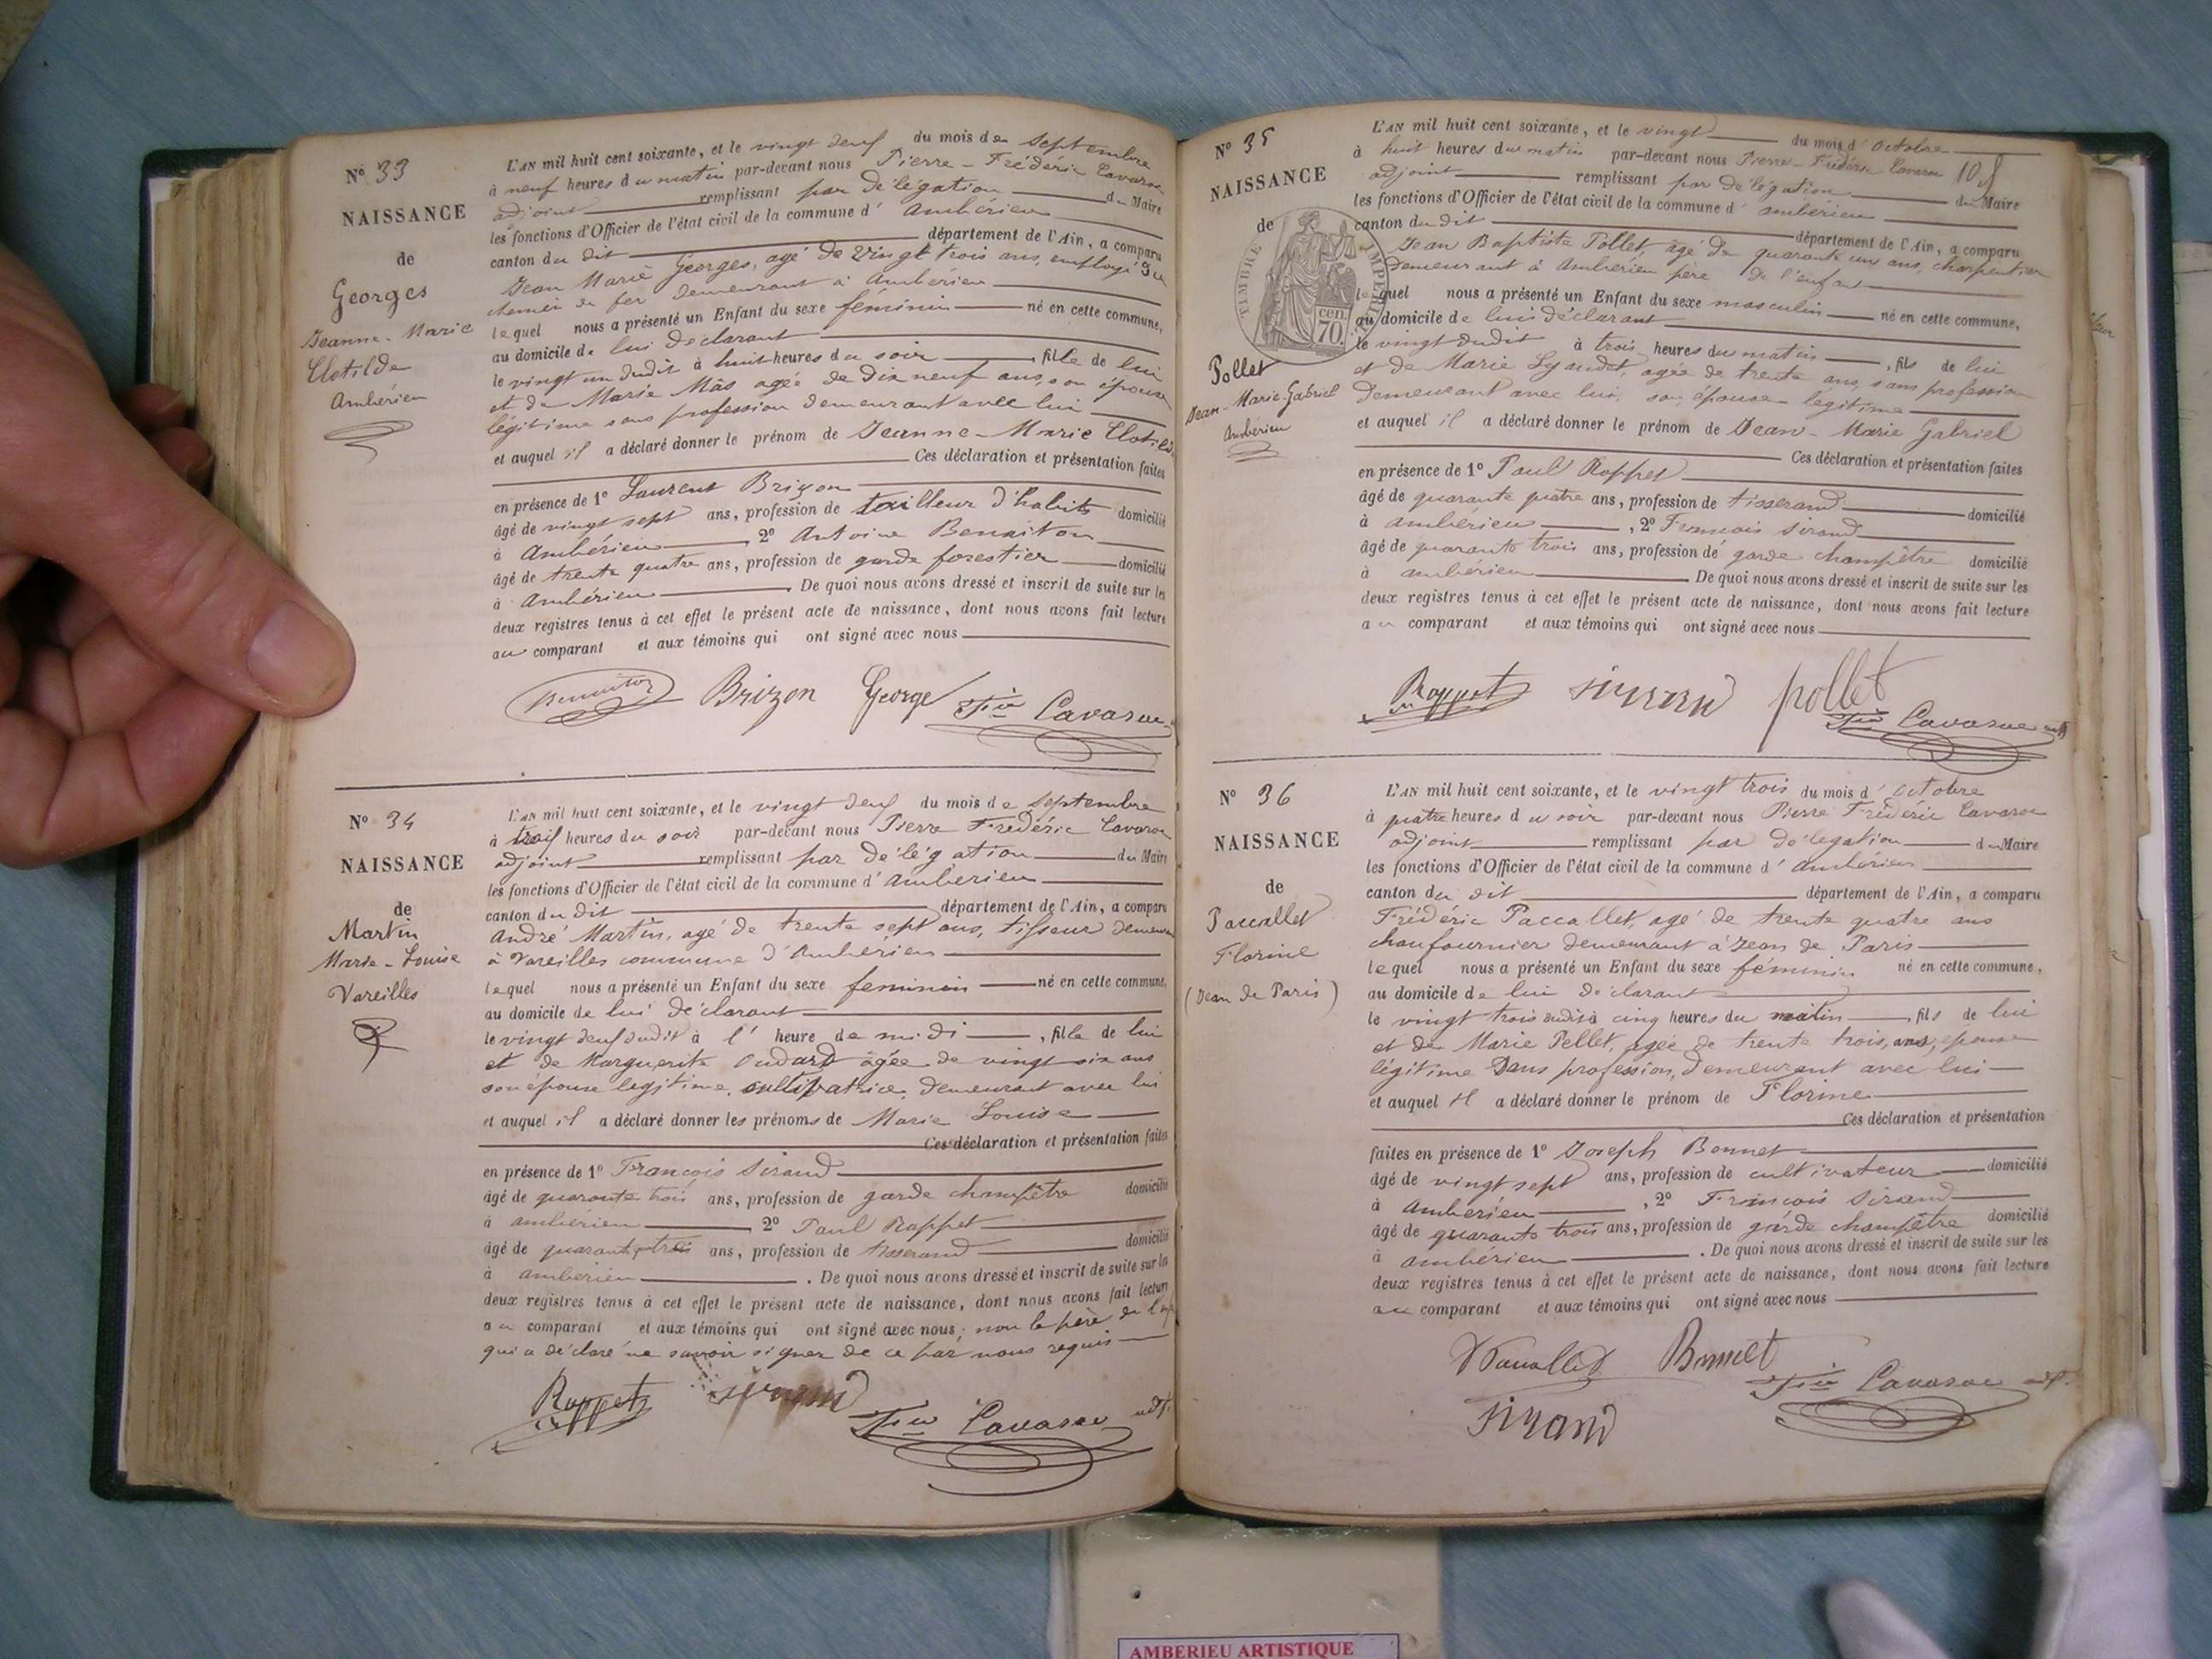 Nº 33
NAISSANCE
de
Georges
Jeanne-Marie
Clotilde
Ambérieu
L'AN mil huit cent soixante, et le vingt deux du mois de Septembre
à neuf heures du matin par-devant nous Pierre-Frédéric Cavaroc
adjoint remplissant par délégation du Maire
les fonctions d'Officier de l'état civil de la commune d' Ambérieu
canton du dit département de l'Ain, a comparu
Jean Marie Georges, agé de vingt trois ans, employé au
chemin de fer demeurant à Ambérieu
lequel nous a présenté un Enfant du sexe féminin né en cette commune,
au domicile de lui déclarant
le vingt un dudit à huit heures du soir , fille de lui
et de Marie Mas agée de dix neuf ans, son épouse
légitime sans profession demeurant avec lui
et auquel il a déclaré donner le prénom de Jeanne-Marie Clotilde
Ces déclaration et présentation faites
en présence de 1º Laurent Brizon
âgé de vingt sept ans, profession de tailleur d'habits domicilié
à Ambérieu , 2º Antoine Benniton
âgé de trente quatre ans, profession de garde forestier domicilié
à Ambérieu . De quoi nous avons dressé et inscrit de suite sur les
deux registres tenus à cet effet le présent acte de naissance, dont nous avons fait lecture
au comparant et aux témoins qui ont signé avec nous
Benniton Brizon George Fric Cavaroc
Nº 34
NAISSANCE
de
Martin
Marie-Louise
Vareilles
L'AN mil huit cent soixante, et le vingt deux du mois de Septembre
à trois heures du soir par-devant nous Pierre Frédéric Cavaroc
adjoint remplissant par délégation du Maire
les fonctions d'Officier de l'état civil de la commune d' Ambérieu
canton du dit département de l'Ain, a comparu
André Martin, agé de trente sept ans, tisseur demeurant
à Vareilles commune d'Ambérieu
lequel nous a présenté un Enfant du sexe feminin né en cette commune,
au domicile de lui déclarant
le vingt deux dudit à l' heure de midi , fille de lui
et de Marguerite Oudard âgée de vingt six ans
son épouse legitime, cultivatrice, demeurant avec lui
et auquel il a déclaré donner les prénoms de Marie Louise
Ces déclaration et présentation faites
en présence de 1º François Sirand
âgé de quarante trois ans, profession de garde champêtre domicilié
à ambérieu 2º Paul Roppet
âgé de ans, profession de tisserand domicilié
à ambérieu . De quoi nous avons dressé et inscrit de suite sur les
deux registres tenus à cet effet le présent acte de naissance, dont nous avons fait lecture
au comparant et aux témoins qui ont signé avec nous, non le père de l'enf
qui a déclaré ne savoir signer de ce par nous requis
Roppet Sirand Fric Cavaroc adjt
Nº 35
NAISSANCE
de
TIMBRE IMPERIAL
cen.
70.
Pollet
Jean-Marie-Gabriel
Ambérieu
108
L'AN mil huit cent soixante, et le vingt du mois d' Octobre
à huit heures du matin par-devant nous Pierre-Frédéric Cavaroc
adjoint remplissant par délégation du Maire
les fonctions d'Officier de l'état civil de la commune d' ambérieu
canton du dit département de l'Ain, a comparu
Jean Baptiste Pollet, agé de quarante un ans, charpentier
demeurant à Ambérieu père de l'enfant
lequel nous a présenté un Enfant du sexe masculin né en cette commune,
au domicile de lui déclarant
le vingt dudit à trois heures du matin , fils de lui
et de Marie agée de trente ans, sans profession
demeurant avec lui, son épouse légitime
et auquel il a déclaré donner le prénom de Jean-Marie Gabriel
Ces déclaration et présentation faites
en présence de 1º Paul Roppet
âgé de quarante quatre ans, profession de tisserand domicilié
à ambérieu , 2º François Sirand
âgé de quarante trois ans, profession de garde champêtre domicilié
à ambérieu . De quoi nous avons dressé et inscrit de suite sur les
deux registres tenus à cet effet le présent acte de naissance, dont nous avons fait lecture
au comparant et aux témoins qui ont signé avec nous
Roppet Sirand pollet Fric Cavaroc adjt
Nº 36
NAISSANCE
de
Paccallet
Florine
(Jean de Paris)
L'AN mil huit cent soixante, et le vingt trois du mois d' Octobre
à quatre heures du soir par-devant nous Pierre Frédéric Cavaroc
adjoint remplissant par délégation du Maire
les fonctions d'Officier de l'état civil de la commune d' Ambérieu
canton du dit département de l'Ain, a comparu
Frédéric Paccallet, agé de trente quatre ans
chaufournier demeurant à Jean de Paris
lequel nous a présenté un Enfant du sexe féminin né en cette commune,
au domicile de lui déclarant
le vingt trois dudit à cinq heures du matin , fils de lui
et de Marie Pellet, agée de trente trois, ans, epouse
légitime sans profession, demeurant avec lui
et auquel il a déclaré donner le prénom de Florine
Ces déclaration et présentation
faites en présence de 1º Joseph Bonnet
âgé de vingt sept ans, profession de cultivateur domicilié
à Ambérieu , 2º François Sirand
âgé de quarante trois ans, profession de garde champêtre domicilié
à ambérieu . De quoi nous avons dressé et inscrit de suite sur les
deux registres tenus à cet effet le présent acte de naissance, dont nous avons fait lecture
au comparant et aux témoins qui ont signé avec nous
Paccallet Bonnet Fric Cavaroc adjt
Sirand
AMBERIEU ARTISTIQUE